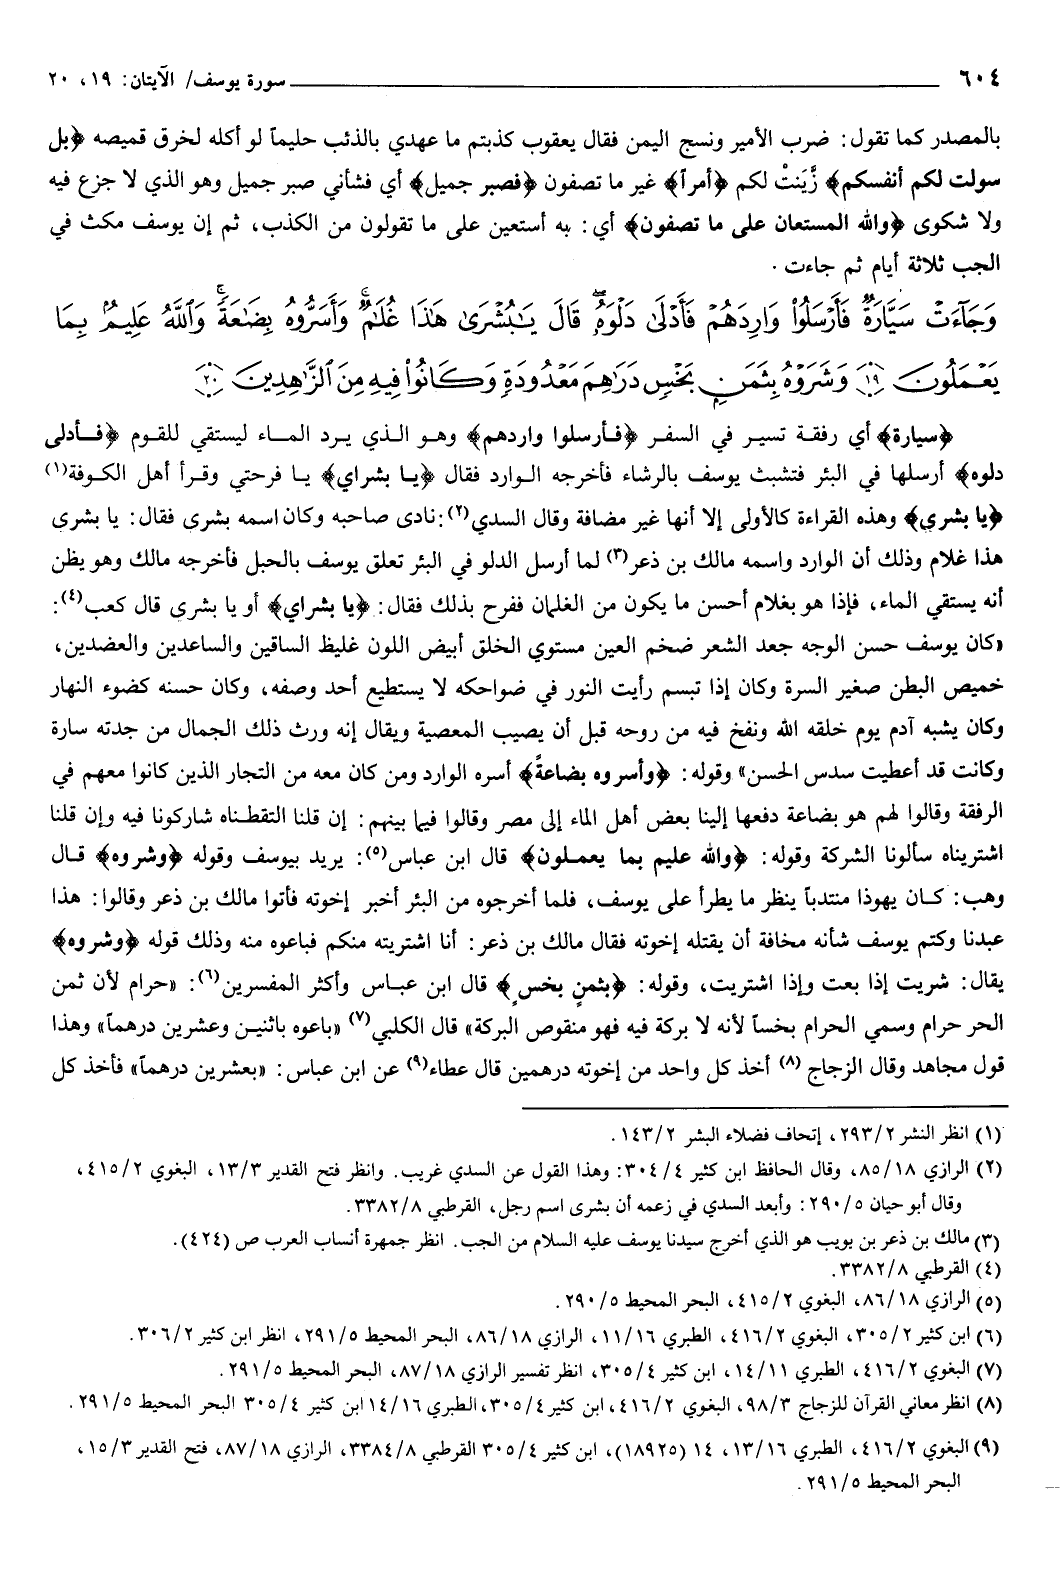 ٦٠٤ سورة يوسف/ الآيتان: ١٩، ٢٠
بالمصدر كما تقول: ضرب الأمير ونسج اليمن فقال يعقوب كذبتم ما عهدي بالذئب حليماً لو أكله لخرق قميصه ﴿بل
سولت لكم أنفسكم﴾ زَّيَنتْ لكم ﴿أمراً﴾ غير ما تصفون ﴿فصبر جميل﴾ أي فشأني صبر جميل وهو الذي لا جزع فيه
ولا شكوى ﴿والله المستعان على ما تصفون﴾ أي: به أستعين على ما تقولون من الكذب، ثم إن يوسف مكث في
الجب ثلاثة أيام ثم جاءت.
وَجَآءَتْ سَيَّارَةٌ فَأَرْسَلُوا۟ وَارِدَهُمْ فَأَدْلَىٰ دَلْوَهُۥ ۖ قَالَ يَـٰبُشْرَىٰ هَـٰذَا غُلَـٰمٌ ۚ وَأَسَرُّوهُ بِضَـٰعَةً ۚ وَٱللَّهُ عَلِيمٌۢ بِمَا
يَعْمَلُونَ ١٩ وَشَرَوْهُ بِثَمَنٍۭ بَخْسٍ دَرَٰهِمَ مَعْدُودَةٍ وَكَانُوا۟ فِيهِ مِنَ ٱلزَّٰهِدِينَ ٢٠
﴿سيارة﴾ أي رفقة تسير في السفر ﴿فأرسلوا واردهم﴾ وهو الذي يرد الماء ليستقي للقوم ﴿فأدلى
دلوه﴾ أرسلها في البئر فتشبث يوسف بالرشاء فأخرجه الوارد فقال ﴿يا بشراي﴾ يا فرحتي وقرأ أهل الكوفة(١)
﴿يا بشرى﴾ وهذه القراءة كالأولى إلا أنها غير مضافة وقال السدي(٢): نادى صاحبه وكان اسمه بشرى فقال: يا بشرى
هذا غلام وذلك أن الوارد واسمه مالك بن ذعر(٣) لما أرسل الدلو في البئر تعلق يوسف بالحبل فأخرجه مالك وهو يظن
أنه يستقي الماء، فإذا هو بغلام أحسن ما يكون من الغلمان ففرح بذلك فقال: ﴿يا بشراي﴾ أو يا بشرى قال كعب(٤):
«كان يوسف حسن الوجه جعد الشعر ضخم العين مستوي الخلق أبيض اللون غليظ الساقين والساعدين والعضدين،
خميص البطن صغير السرة وكان إذا تبسم رأيت النور في ضواحكه لا يستطيع أحد وصفه، وكان حسنه كضوء النهار
وكان يشبه آدم يوم خلقه الله ونفخ فيه من روحه قبل أن يصيب المعصية ويقال إنه ورث ذلك الجمال من جدته سارة
وكانت قد أعطيت سدس الحسن» وقوله: ﴿وأسروه بضاعةً﴾ أسره الوارد ومن كان معه من التجار الذين كانوا معهم في
الرفقة وقالوا لهم هو بضاعة دفعها إلينا بعض أهل الماء إلى مصر وقالوا فيما بينهم: إن قلنا التقطناه شاركونا فيه وإن قلنا
اشتريناه سألونا الشركة وقوله: ﴿والله عليم بما يعملون﴾ قال ابن عباس(٥): يريد بيوسف وقوله ﴿وشروه﴾ قال
وهب: كان يهوذا منتدباً ينظر ما يطرأ على يوسف، فلما أخرجوه من البئر أخبر إخوته فأتوا مالك بن ذعر وقالوا: هذا
عبدنا وكتم يوسف شأنه مخافة أن يقتله إخوته فقال مالك بن ذعر: أنا اشتريته منكم فباعوه منه وذلك قوله ﴿وشروه﴾
يقال: شريت إذا بعت وإذا اشتريت، وقوله: ﴿بثمنٍ بخسٍ﴾ قال ابن عباس وأكثر المفسرين(٦): «حرام لأن ثمن
الحر حرام وسمي الحرام بخساً لأنه لا بركة فيه فهو منقوص البركة» قال الكلبي(٧) «باعوه باثنين وعشرين درهماً» وهذا
قول مجاهد وقال الزجاج(٨) أخذ كل واحد من إخوته درهمين قال عطاء(٩) عن ابن عباس: «بعشرين درهماً» فأخذ كل
(١) انظر النشر ٢٩٣/٢، إتحاف فضلاء البشر ١٤٣/٢.
(٢) الرازي ٨٥/١٨، وقال الحافظ ابن كثير ٣٠٤/٤: وهذا القول عن السدي غريب. وانظر فتح القدير ١٣/٣، البغوي ٤١٥/٢،
وقال أبو حيان ٢٩٠/٥: وأبعد السدي في زعمه أن بشرى اسم رجل، القرطبي ٣٣٨٢/٨.
(٣) مالك بن ذعر بن يويب هو الذي أخرج سيدنا يوسف عليه السلام من الجب. انظر جمهرة أنساب العرب ص (٤٢٤).
(٤) القرطبي ٣٣٨٢/٨.
(٥) الرازي ٨٦/١٨، البغوي ٤١٥/٢، البحر المحيط ٢٩٠/٥.
(٦) ابن كثير ٣٠٥/٢، البغوي ٤١٦/٢، الطبري ١١/١٦، الرازي ٨٦/١٨، البحر المحيط ٢٩١/٥، انظر ابن كثير ٣٠٦/٢.
(٧) البغوي ٤١٦/٢، الطبري ١٤/١١، ابن كثير ٣٠٥/٤، انظر تفسير الرازي ٨٧/١٨، البحر المحيط ٢٩١/٥.
(٨) انظر معاني القرآن للزجاج ٩٨/٣، البغوي ٤١٦/٢، ابن كثير ٣٠٥/٤، الطبري ١٤/١٦ ابن كثير ٣٠٥/٤ البحر المحيط ٢٩١/٥.
(٩) البغوي ٤١٦/٢، الطبري ١٣/١٦، ١٤ (١٨٩٢٥)، ابن كثير ٣٠٥/٤ القرطبي ٣٣٨٤/٨، الرازي ٨٧/١٨، فتح القدير ١٥/٣،
البحر المحيط ٢٩١/٥.